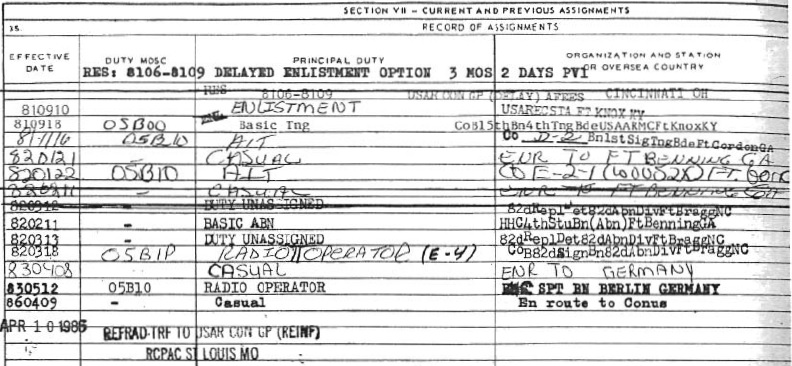 SECTION VII - CURRENT AND PREVIOUS ASSIGNMENTS
35. RECORD OF ASSIGNMENTS
EFFECTIVE DATE DUTY MOSC PRINCIPAL DUTY ORGANIZATION AND STATION OR OVERSEA COUNTRY
RES: 8106-8109 DELAYED ENLISTMENT OPTION 3 MOS 2 DAYS PV1
RES 8106-8109 USAR CON GP (DELAY) AFEES CINCINNATI OH
810910 ENLISTMENT USARECSTA FT KNOX KY
810918 05B00 Basic Tng CoB15thBn4thTngBdeUSAARMCFtKnoxKY
05B10 AIT Co D-2 BnlstSigTngBdeFtGordonGA
820121 - CASUAL ENR TO FT BENNING GA
820122 05B10 AIT Co E-2-1 FT.
- CASUAL ENR TO FT BENNING GA
820312 - DUTY UNASSIGNED 82dReplDet82dAbnDivFtBraggNC
820211 - BASIC ABN HHC4thStuBn(Abn)FtBenningGA
820313 - DUTY UNASSIGNED 82dReplDet82dAbnDivFtBraggNC
820318 05B1P RADIO OPERATOR (E-4) CoB82dSignBn82dAbnDivFtBraggNC
830408 CASUAL ENR TO GERMANY
830512 05B10 RADIO OPERATOR SPT BN BERLIN GERMANY
860409 - Casual En route to Conus
APR 10 1986 REFRAD-TRF TO USAR CON GP (REINF)
RCPAC ST LOUIS MO